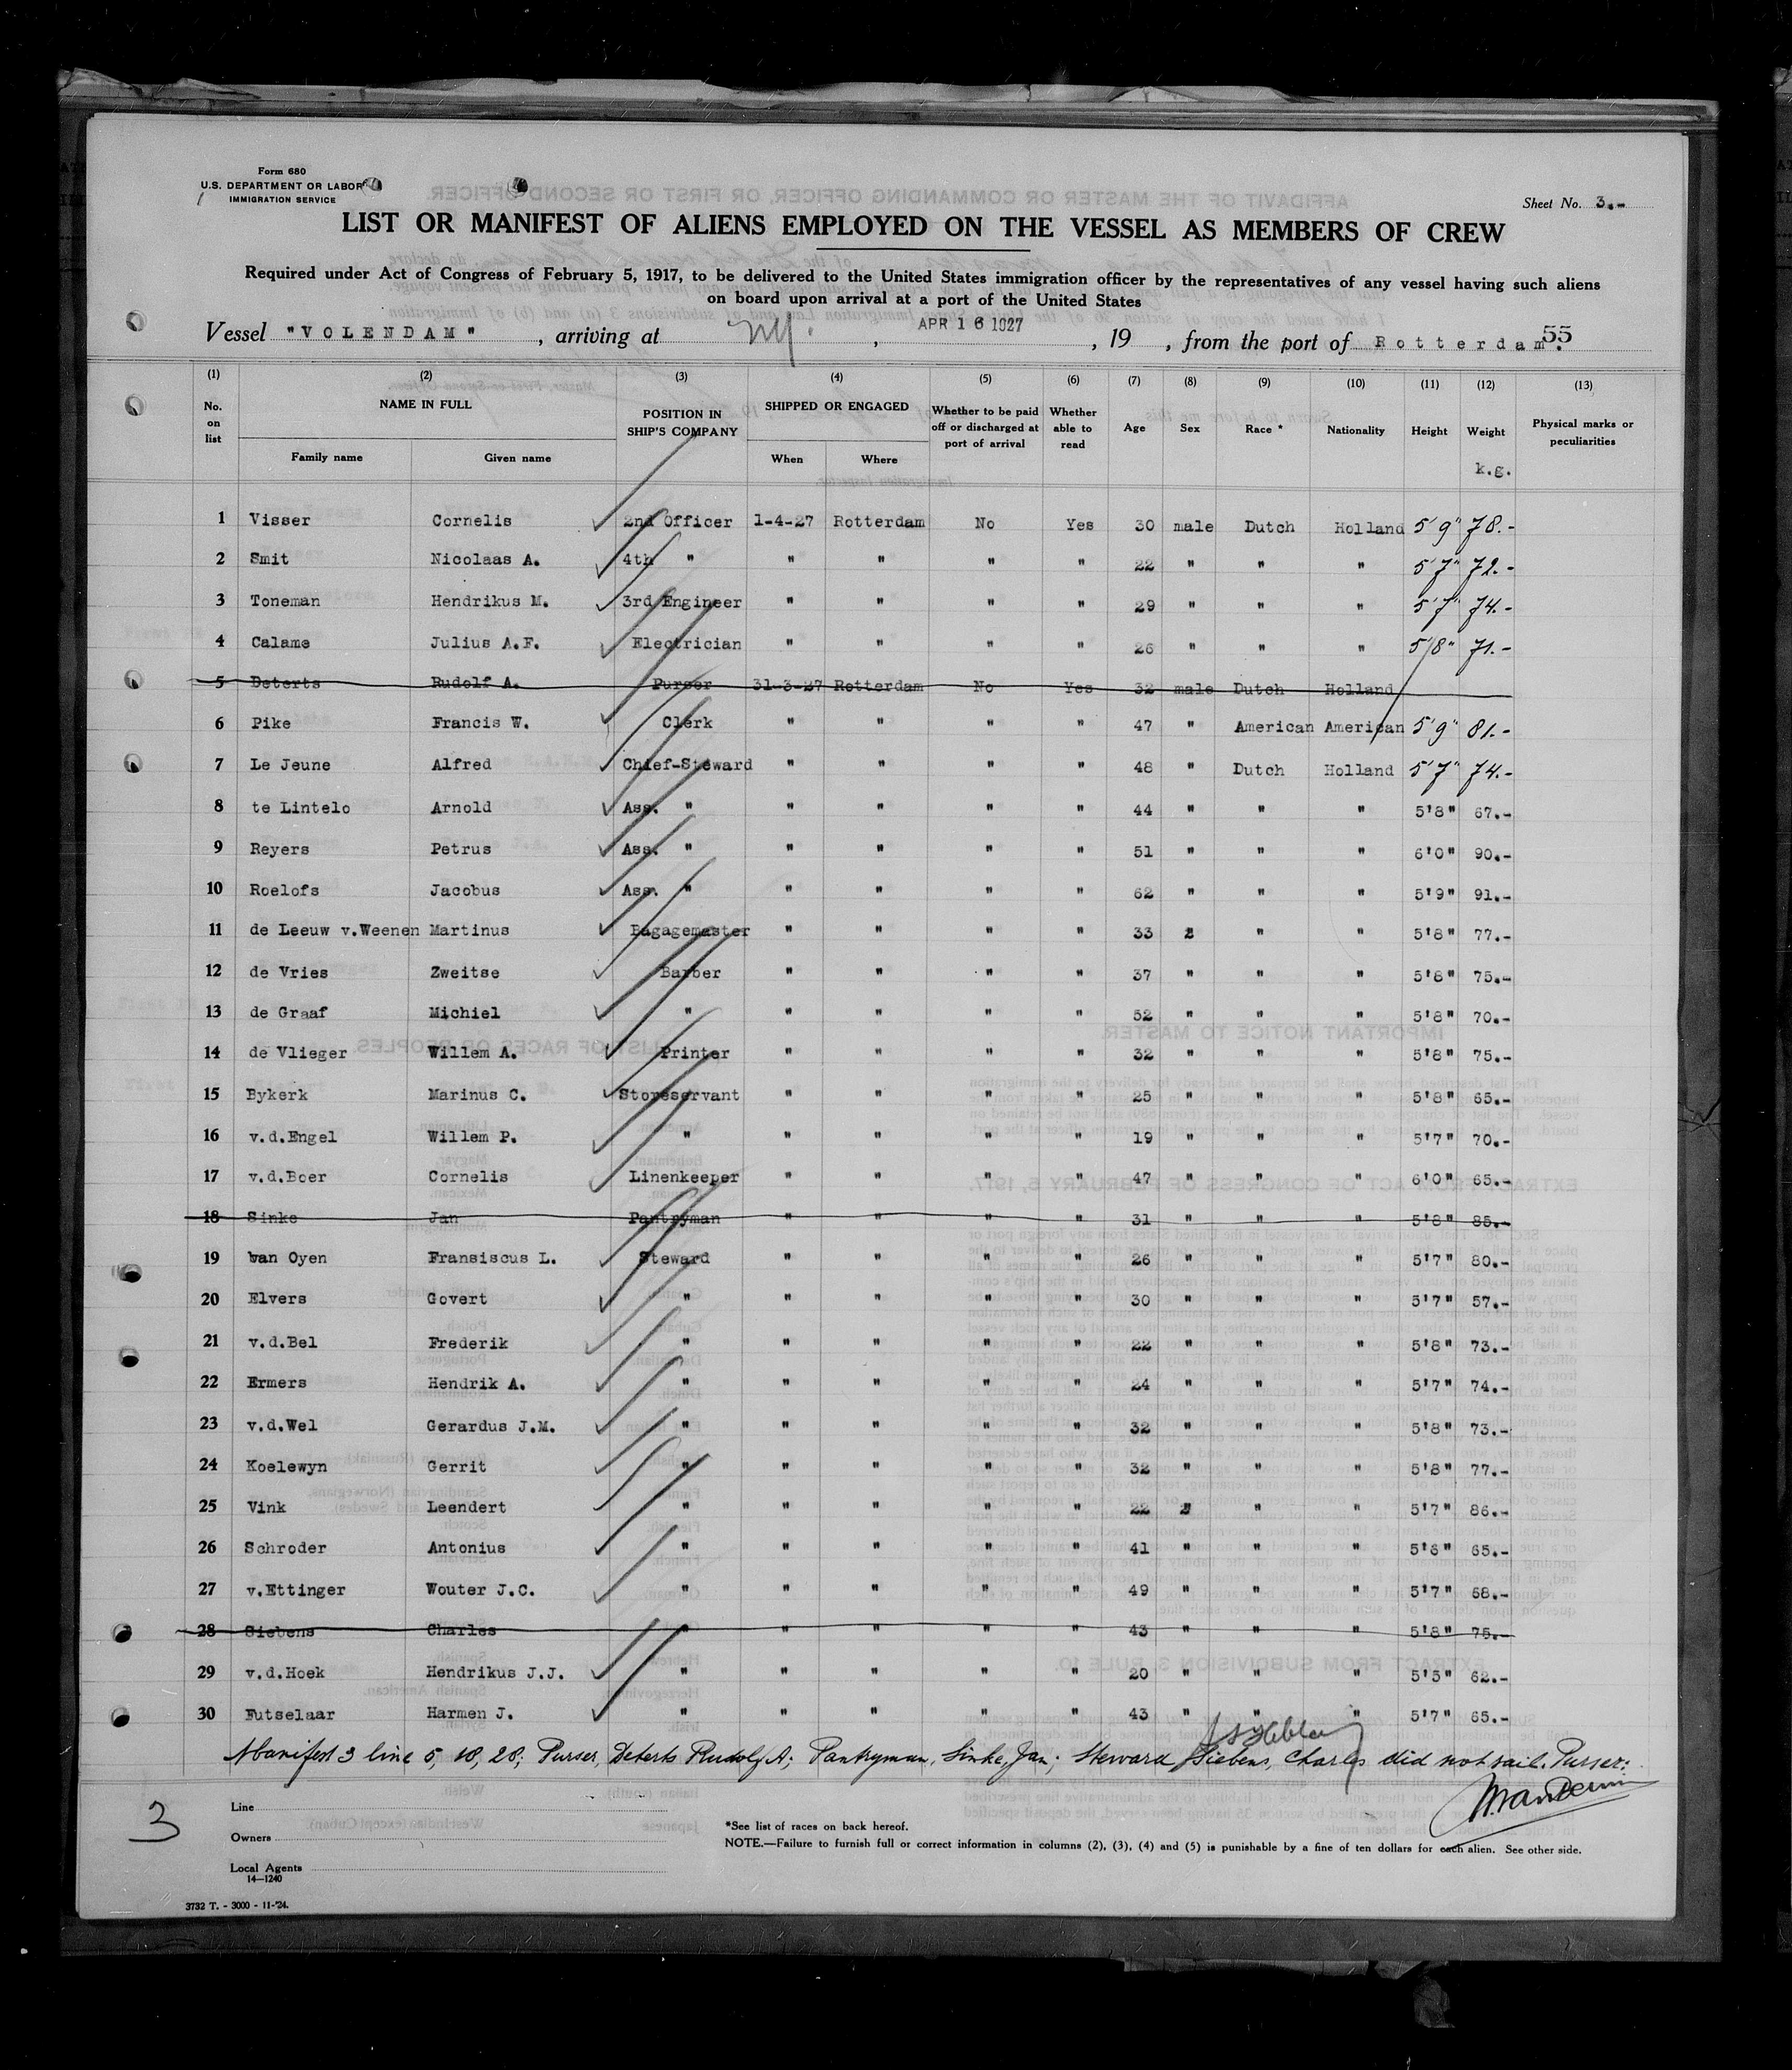 Form 680
U.S. DEPARTMENT OR LABOR
IMMIGRATION SERVICE
Sheet No. 3.-
LIST OR MANIFEST OF ALIENS EMPLOYED ON THE VESSEL AS MEMBERS OF CREW
Required under Act of Congress of February 5, 1917, to be delivered to the United States immigration officer by the representatives of any vessel having such aliens
on board upon arrival at a port of the United States
Vessel "VOLENDAM", arriving at NY. , APR 16 1927 , 19 , from the port of Rotterdam. 55
(1) (2) (3) (4) (5) (6) (7) (8) (9) (10) (11) (12) (13)
No. on list NAME IN FULL Family name Given name POSITION IN SHIP'S COMPANY SHIPPED OR ENGAGED When Where Whether to be paid off or discharged at port of arrival Whether able to read Age Sex Race * Nationality Height Weight k.g. Physical marks or peculiarities
1 Visser Cornelis 2nd Officer 1-4-27 Rotterdam No Yes 30 male Dutch Holland 5'9" 78.-
2 Smit Nicolaas A. 4th " " " " " 22 " " " 5'7" 72.-
3 Toneman Hendrikus M. 3rd Engineer " " " " 29 " " " 5'7" 74.-
4 Calame Julius A.F. Electrician " " " " 26 " " " 5'8" 71.-
5 Deterts Rudolf A. Purser 31-3-27 Rotterdam No Yes 32 male Dutch Holland
6 Pike Francis W. Clerk " " " " 47 " American American 5'9" 81.-
7 Le Jeune Alfred Chief-Steward " " " " 48 " Dutch Holland 5'7" 74.-
8 te Lintelo Arnold Ass. " " " " " 44 " " " 5'8" 67.-
9 Reyers Petrus Ass. " " " " " 51 " " " 6'0" 90.-
10 Roelofs Jacobus Ass. " " " " " 62 " " " 5'9" 91.-
11 de Leeuw v.Weenen Martinus Bagagemaster " " " " 33 " " " 5'8" 77.-
12 de Vries Zweitse Barber " " " " 37 " " " 5'8" 75.-
13 de Graaf Michiel " " " " " 52 " " " 5'8" 70.-
14 de Vlieger Willem A. Printer " " " " 32 " " " 5'8" 75.-
15 Bykerk Marinus C. Storeservant " " " " 25 " " " 5'8" 65.-
16 v.d.Engel Willem P. " " " " " 19 " " " 5'7" 70.-
17 v.d.Boer Cornelis Linenkeeper " " " " 47 " " " 6'0" 65.-
18 Sinke Jan Pantryman " " " " 31 " " " 5'8" 85.-
19 van Oyen Fransiscus L. Steward " " " " 26 " " " 5'7" 80.-
20 Elvers Govert " " " " " 30 " " " 5'7" 57.-
21 v.d.Bel Frederik " " " " " 22 " " " 5'8" 73.-
22 Ermers Hendrik A. " " " " " 24 " " " 5'7" 74.-
23 v.d.Wel Gerardus J.M. " " " " " 32 " " " 5'8" 73.-
24 Koelewyn Gerrit " " " " " 32 " " " 5'8" 77.-
25 Vink Leendert " " " " " 22 " " " 5'7" 86.-
26 Schroder Antonius " " " " " 41 " " " 5'8" 65.-
27 v.Ettinger Wouter J.C. " " " " " 49 " " " 5'7" 68.-
28 Siebens Charles " " " " " 43 " " " 5'8" 75.-
29 v.d.Hoek Hendrikus J.J. " " " " " 20 " " " 5'5" 62.-
30 Futselaar Harmen J. " " " " " 43 " " " 5'7" 65.-
Manifest 3 line 5, 18, 28; Purser, Deterts Rudolf A; Pantryman, Sinke, Jan; Steward, Siebens, Charles did not sail. Purser:
3
Line
Owners
Local Agents
14—1240
*See list of races on back hereof.
NOTE.—Failure to furnish full or correct information in columns (2), (3), (4) and (5) is punishable by a fine of ten dollars for each alien. See other side.
3732 T. - 3000 - 11-'24.